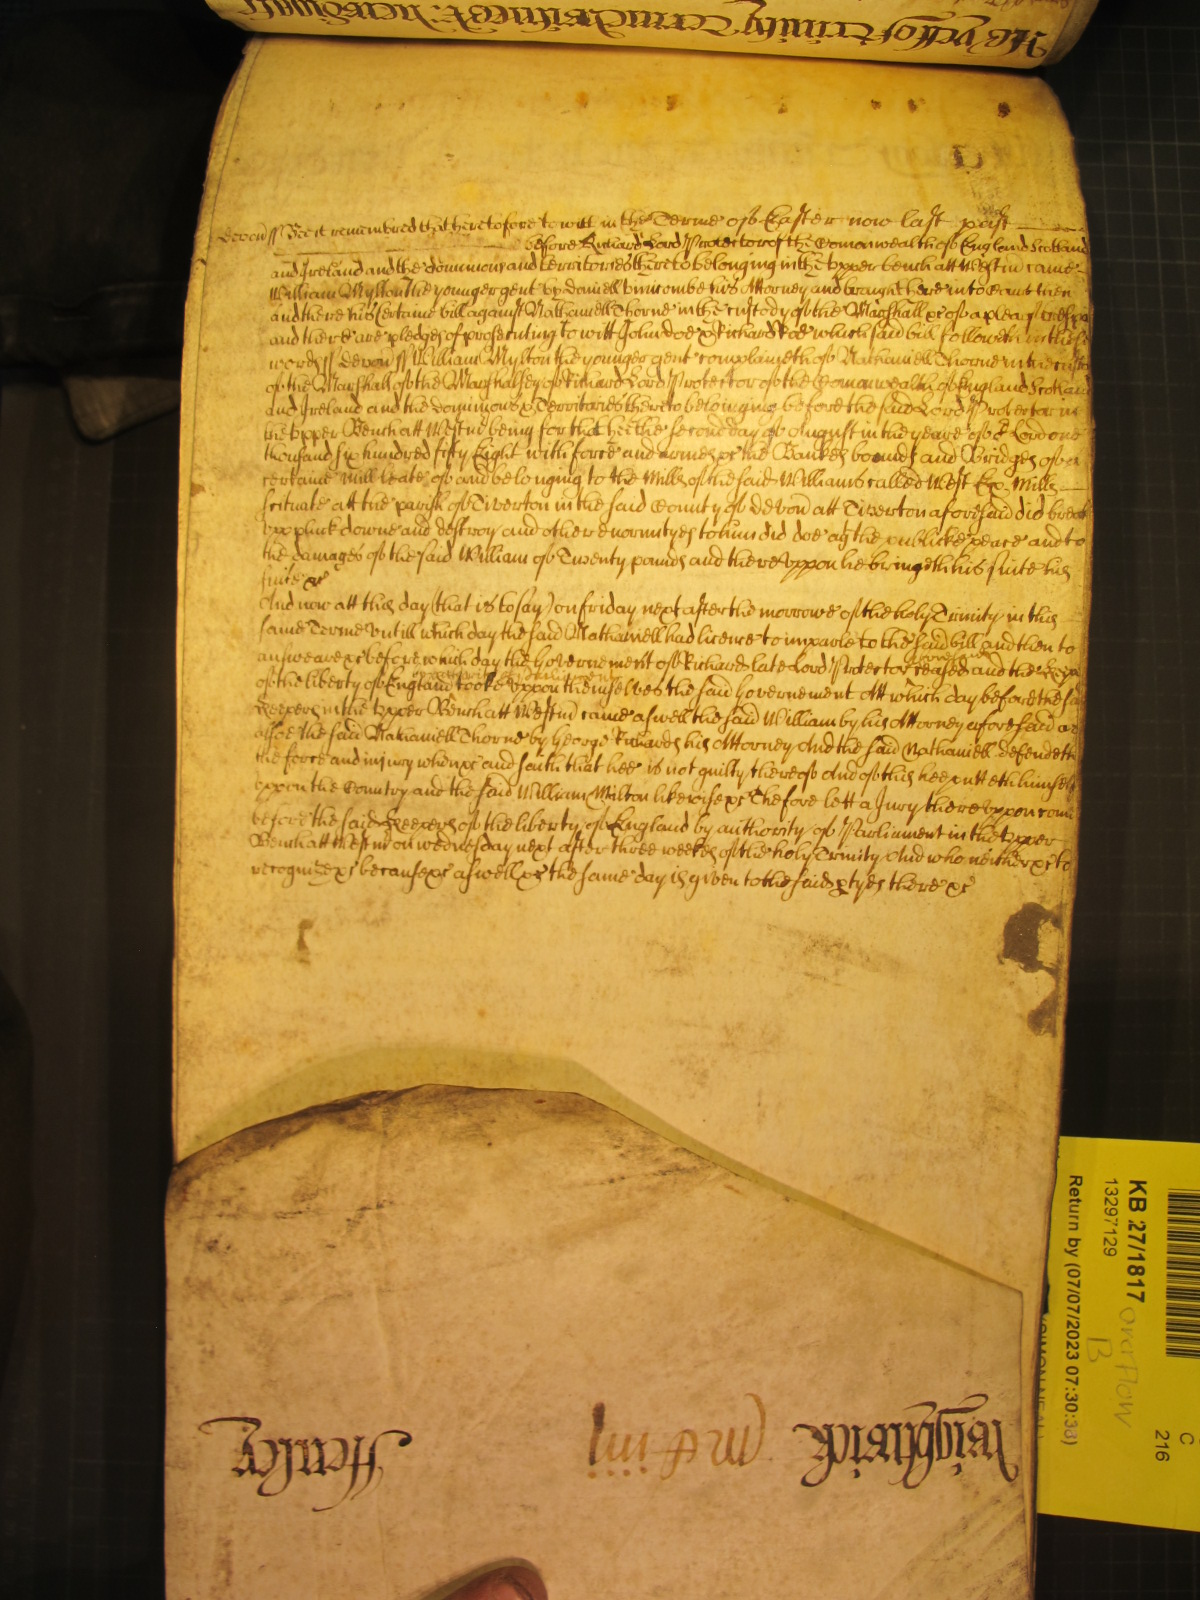 As yett of Trinity Terme
devon ss Bee it remembred that heretofore to witt in the Terme of Easter now last past
before Richard Lord Protector of the Comonwealth of England Scotland
and Ireland and the dominions and territories thereto belonging in the Upper bench att Westm came
William Mylton the younger gent by daniell his Attorney and brought here into Court then
and there his certaine bill against Nathaniell Thorne in the custody of the Marshall &c of a plea of trespas
and there are pledges of prosecuting to witt John doe & Richard Roe which said bill followeth in these
words ss devon ss William Mylton the younger gent complaineth of Nathaniell Thorne in the custody
of the Marshall of the Marshalsey of Richard Lord Protector of the Comonwealth of England Scotland
and Ireland and the dominions & Territories thereto belonging before the said Lord Protector in
the Upper Bench att Westm being for that hee the second day of August in the yeare of or Lord one
thousand six hundred fifty Eight with force and armes &c the Bankes bounds and Bridges of a
certaine Mill leate of and belonging to the Mills of the said Williams called West Ex Mills
scituate att the parish of Tiverton in the said County of devon att Tiverton aforesaid did breake
upp pluck downe and destroy and other enormityes to him did doe agt the publicke peace and to
the damages of the said William of Twenty pounds and thereuppon he bringeth his suite his
suite &c
And now att this day (that is to say) on friday next after the morrowe of the holy Trinity in this
same Terme untill which day the said Nathaniell had licence to imparle to the said bill and then to
answeare &c before which day the Governement of Richard late Lord Protector ceased and the Keepers
of the liberty of England by authority of Parliament tooke uppon themselves the said Governement Att which day before the said
Keepers in the Upper Bench att Westm came aswell the said William by his Attorney aforesaid as
alsoe the said Nathaniell Thorne by George Richards his Attorney And the said Nathaniell defendeth
the force and injury when &c and saith that hee is not guilty thereof And of this hee putteth himself
uppon the Country and the said William Milton likewise &c Thefore lett a Jury thereuppon come
before the said Keepers of the liberty of England by authority of Parliament in the Upper
Bench att Westm on wednesday next after three weekes of the holy Trinity And who neither &c to
recognize &c because &c aswell &c the same day is given to the said ptyes there &c
Weightwick
Henley
KB 27/1817
13297129
Return by (07/07/2023 07:30:38)
overflow
B
C
216